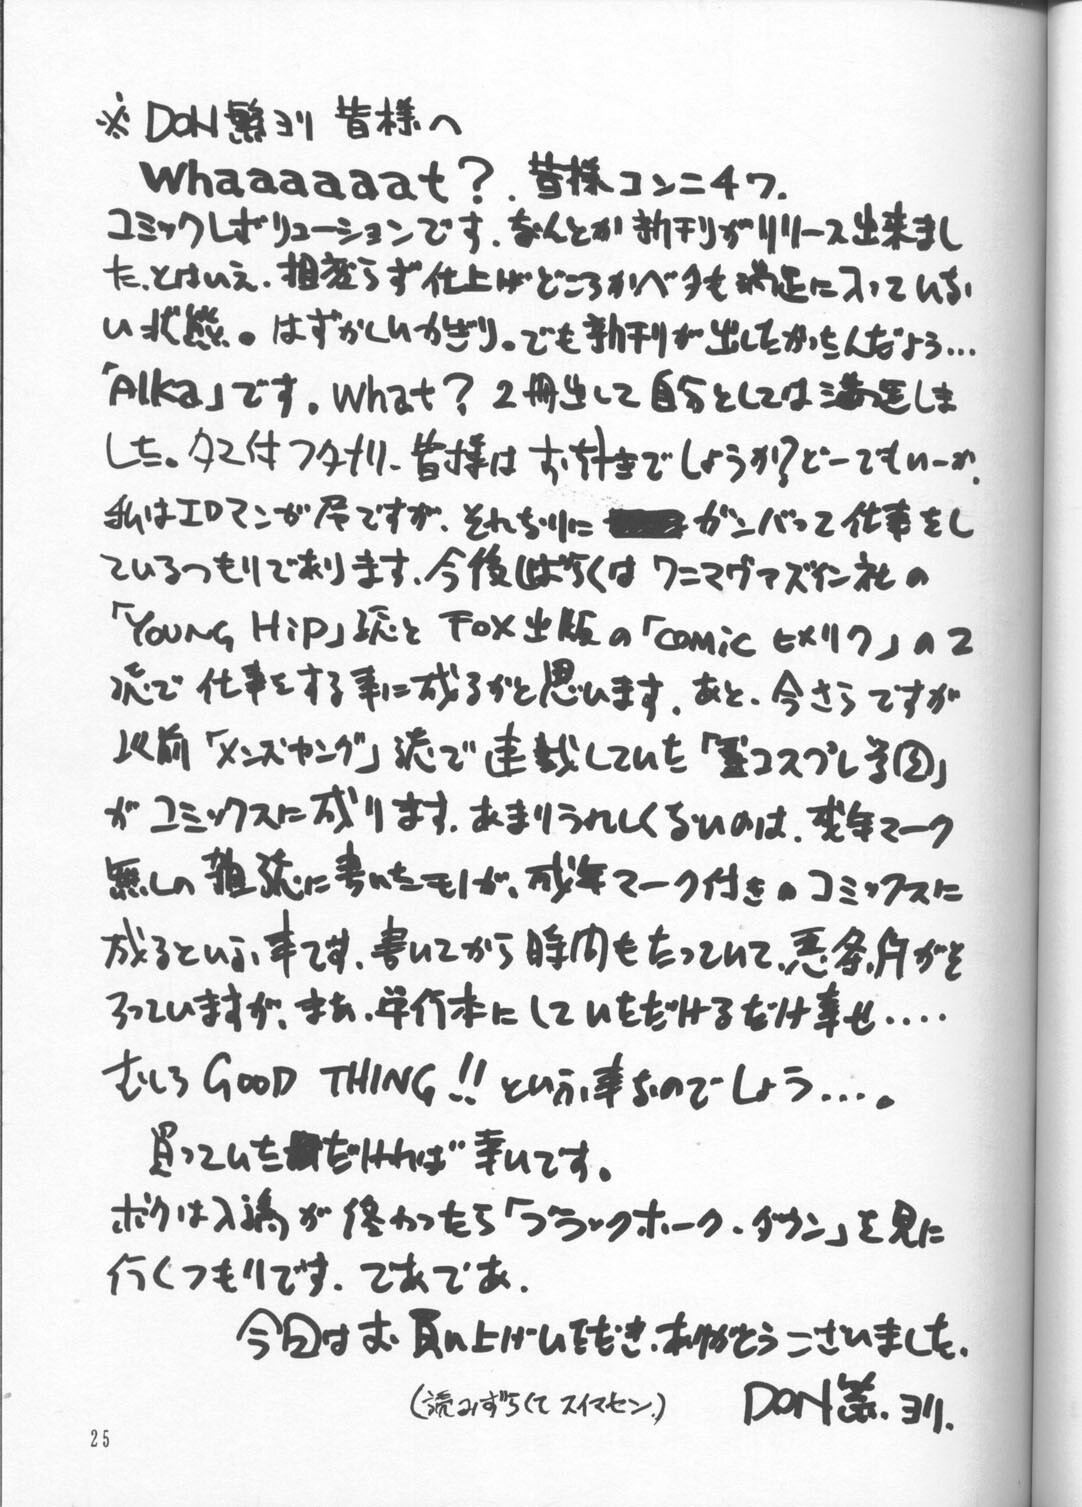 ※DON繁ヨリ 皆様へ
Whaaaaaaat?. 皆様コンニチワ.
コミックレボリューションです.なんとか新刊がリリース出来まし
た.とはいえ.相変らず仕上げどころかベタも満足に入っていな
い状態。はずかしいかぎり。でも新刊が出したかったんだよう…
「Alka」です。What? 2冊出して自分としては満足しま
した。タマ付フタナリ.皆様はお好きでしょうか?どーでもいーか.
私はエロマンガ屋ですが.それなりに ガンバって仕事をし
ているつもりであります.今後しばらくはワニマガヴァズイン社の
「YOUNG HiP」誌とFOX出版の「COMiC ヒメリク」の2
誌で仕事をする事に成るかと思います.あと.今さらですが
以前「メンズヤング」誌で連載していた「コスプレ学園」
がコミックスに成ります.あまりうれしくないのは.成年マーク
無しの雑誌に書いたモノが、成年マーク付きのコミックスに
成るといふ事です.書いてから時間もたっていて、悪条件がそ
ろっていますが、まあ.単行本にしていただけるだけ幸せ‥‥
むしろGOOD THING!!といふ事なのでしょう…。
買っていただければ幸いです。
ボクは入稿が終わったら「ブラックホーク・ダウン」を見に
行くつもりです.であであ.
今回はお買い上げいただき.ありがとうございました.
(読みずらくてスイマセン.)
DON繁.ヨリ.
25